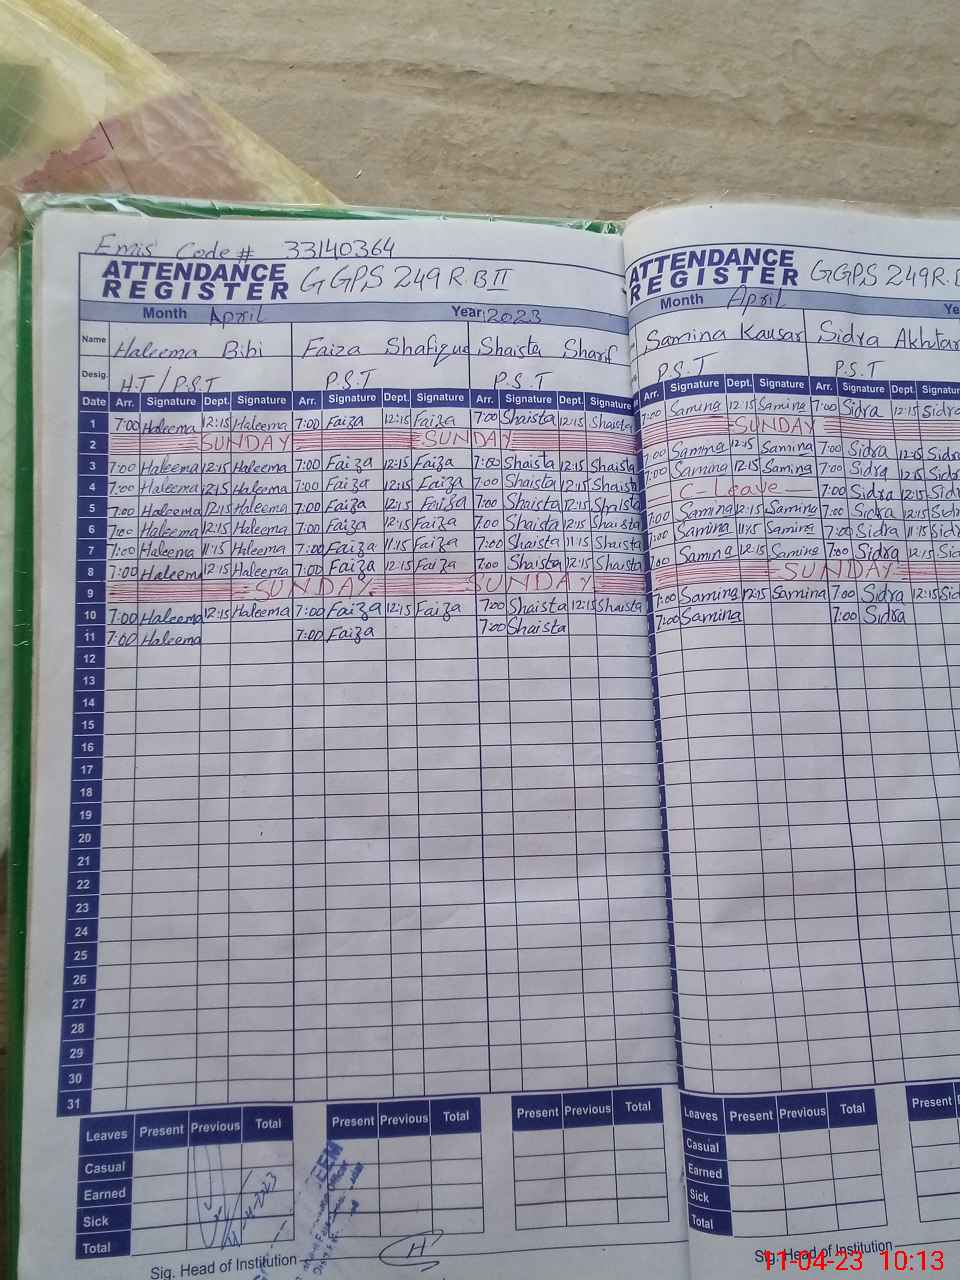 Emis Code # 33140364
ATTENDANCE REGISTER GGPS 249 R.B II
Month April Year 2023
Name Haleema Bibi Faiza Shafique Shaista Sharif
Desig. H.T / P.S.T P.S.T P.S.T
Date Arr. Signature Dept. Signature Arr. Signature Dept. Signature Arr. Signature Dept. Signature
1 7:00 Haleema 12:15 Haleema 7:00 Faiza 12:15 Faiza 7:00 Shaista 12:15 Shaista
2 SUNDAY SUNDAY
3 7:00 Haleema 12:15 Haleema 7:00 Faiza 12:15 Faiza 7:00 Shaista 12:15 Shaista
4 7:00 Haleema 12:15 Haleema 7:00 Faiza 12:15 Faiza 7:00 Shaista 12:15 Shaista
5 7:00 Haleema 12:15 Haleema 7:00 Faiza 12:15 Faiza 7:00 Shaista 12:15 Shaista
6 7:00 Haleema 12:15 Haleema 7:00 Faiza 12:15 Faiza 7:00 Shaista 12:15 Shaista
7 7:00 Haleena 11:15 Haleema 7:00 Faiza 11:15 Faiza 7:00 Shaista 11:15 Shaista
8 7:00 Haleema 12:15 Haleema 7:00 Faiza 12:15 Faiza 7:00 Shaista 12:15 Shaista
9 SUNDAY SUNDAY
10 7:00 Haleema 12:15 Haleema 7:00 Faiza 12:15 Faiza 7:00 Shaista 12:15 Shaista
11 7:00 Haleema 7:00 Faiza 7:00 Shaista
12
13
14
15
16
17
18
19
20
21
22
23
24
25
26
27
28
29
30
31
Leaves Present Previous Total Present Previous Total Present Previous Total
Casual
Earned
Sick
Total
Sig. Head of Institution
ATTENDANCE REGISTER GGPS 249 R.
Month April
Samina Kausar Sidra Akhtar
P.S.T P.S.T
Arr. Signature Dept. Signature Arr. Signature Dept. Signatur
7:00 Samina 12:15 Samina 7:00 Sidra 12:15 Sidra
SUNDAY
7:00 Samina 12:15 Samina 7:00 Sidra 12:15 Sidra
7:00 Samina 12:15 Samina 7:00 Sidra 12:15 Sidra
C-Leave 7:00 Sidra 12:15 Sidr
7:00 Samina 12:15 Samina 7:00 Sidra 12:15 Sidr
7:00 Samina 11:15 Samina 7:00 Sidra 11:15 Sidr
7:00 Samina 12:15 Samina 7:00 Sidra 12:15 Sid
SUNDAY
7:00 Samina 12:15 Samina 7:00 Sidra 12:15 Sid
7:00 Samina 7:00 Sidra
Leaves Present Previous Total Present
Casual
Earned
Sick
Total
Sig. Head of Institution
11-04-23 10:13